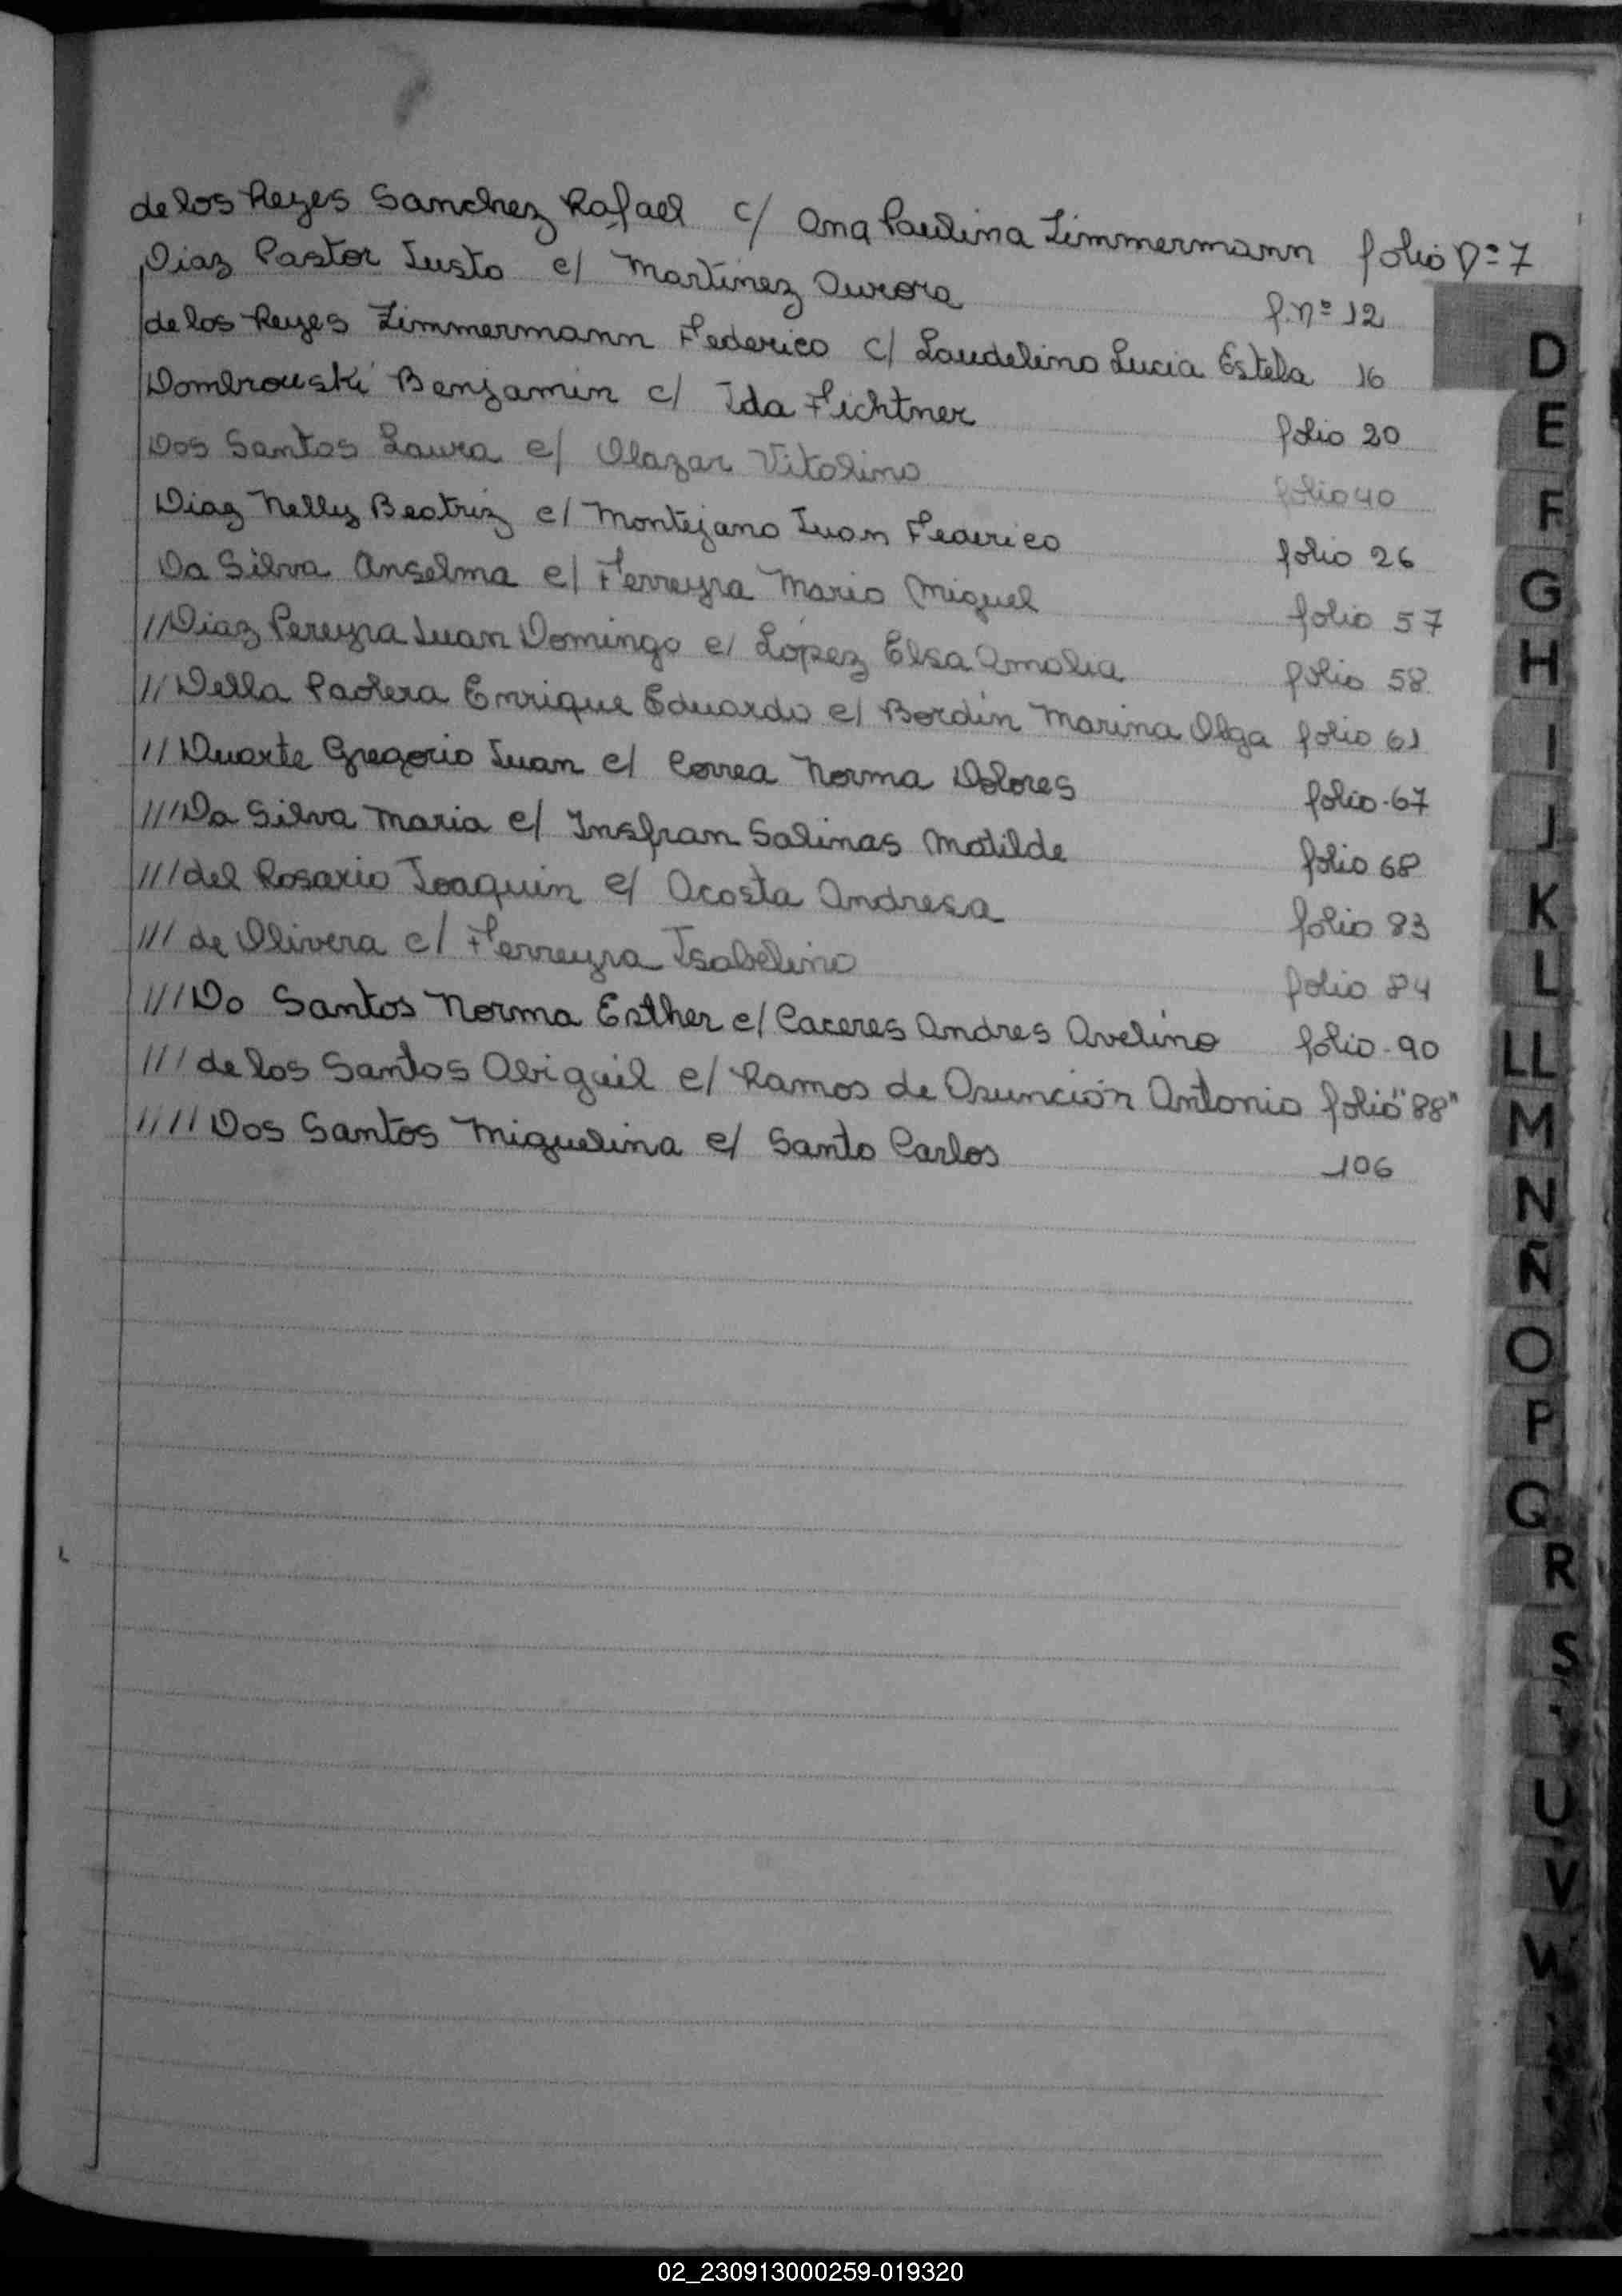 de los Reyes Sanchez Rafael c/ Ana Paulina Zimmermann folio Nº 7
Diaz Pastor Justo c/ Martinez Aurora f. nº 12
de los Reyes Zimmermann Federico c/ Laudelino Lucia Estela 16
Dombrouski Benjamin c/ Ida Fichtner folio 20
Dos Santos Laura c/ Olazar Vitolino folio 40
Diaz Nelly Beatriz c/ Montejano Juan Federico folio 26
Da Silva Anselma c/ Ferreyra Mario Miguel folio 57
// Diaz Pereyra Juan Domingo c/ López Elsa Amalia folio 58
// Della Paolera Enrique Eduardo c/ Bordin Marina Olga folio 61
// Duarte Gregorio Juan c/ Correa Norma Dolores folio - 67
/// Da Silva Maria c/ Insfran Salinas Matilde folio 68
/// del Rosario Joaquin c/ Acosta Andresa folio 83
/// de Olivera c/ Ferreyra Isabelino folio 84
/// Do Santos Norma Esther c/ Caceres Andres Avelino folio - 90
/// de los Santos Abigail c/ Ramos de Asunción Antonio folio "88"
//// Dos Santos Miguelina c/ Santo Carlos 106
D
E
F
G
H
I
J
K
L
LL
M
N
Ñ
O
P
Q
R
S
U
V
W
02_230913000259-019320